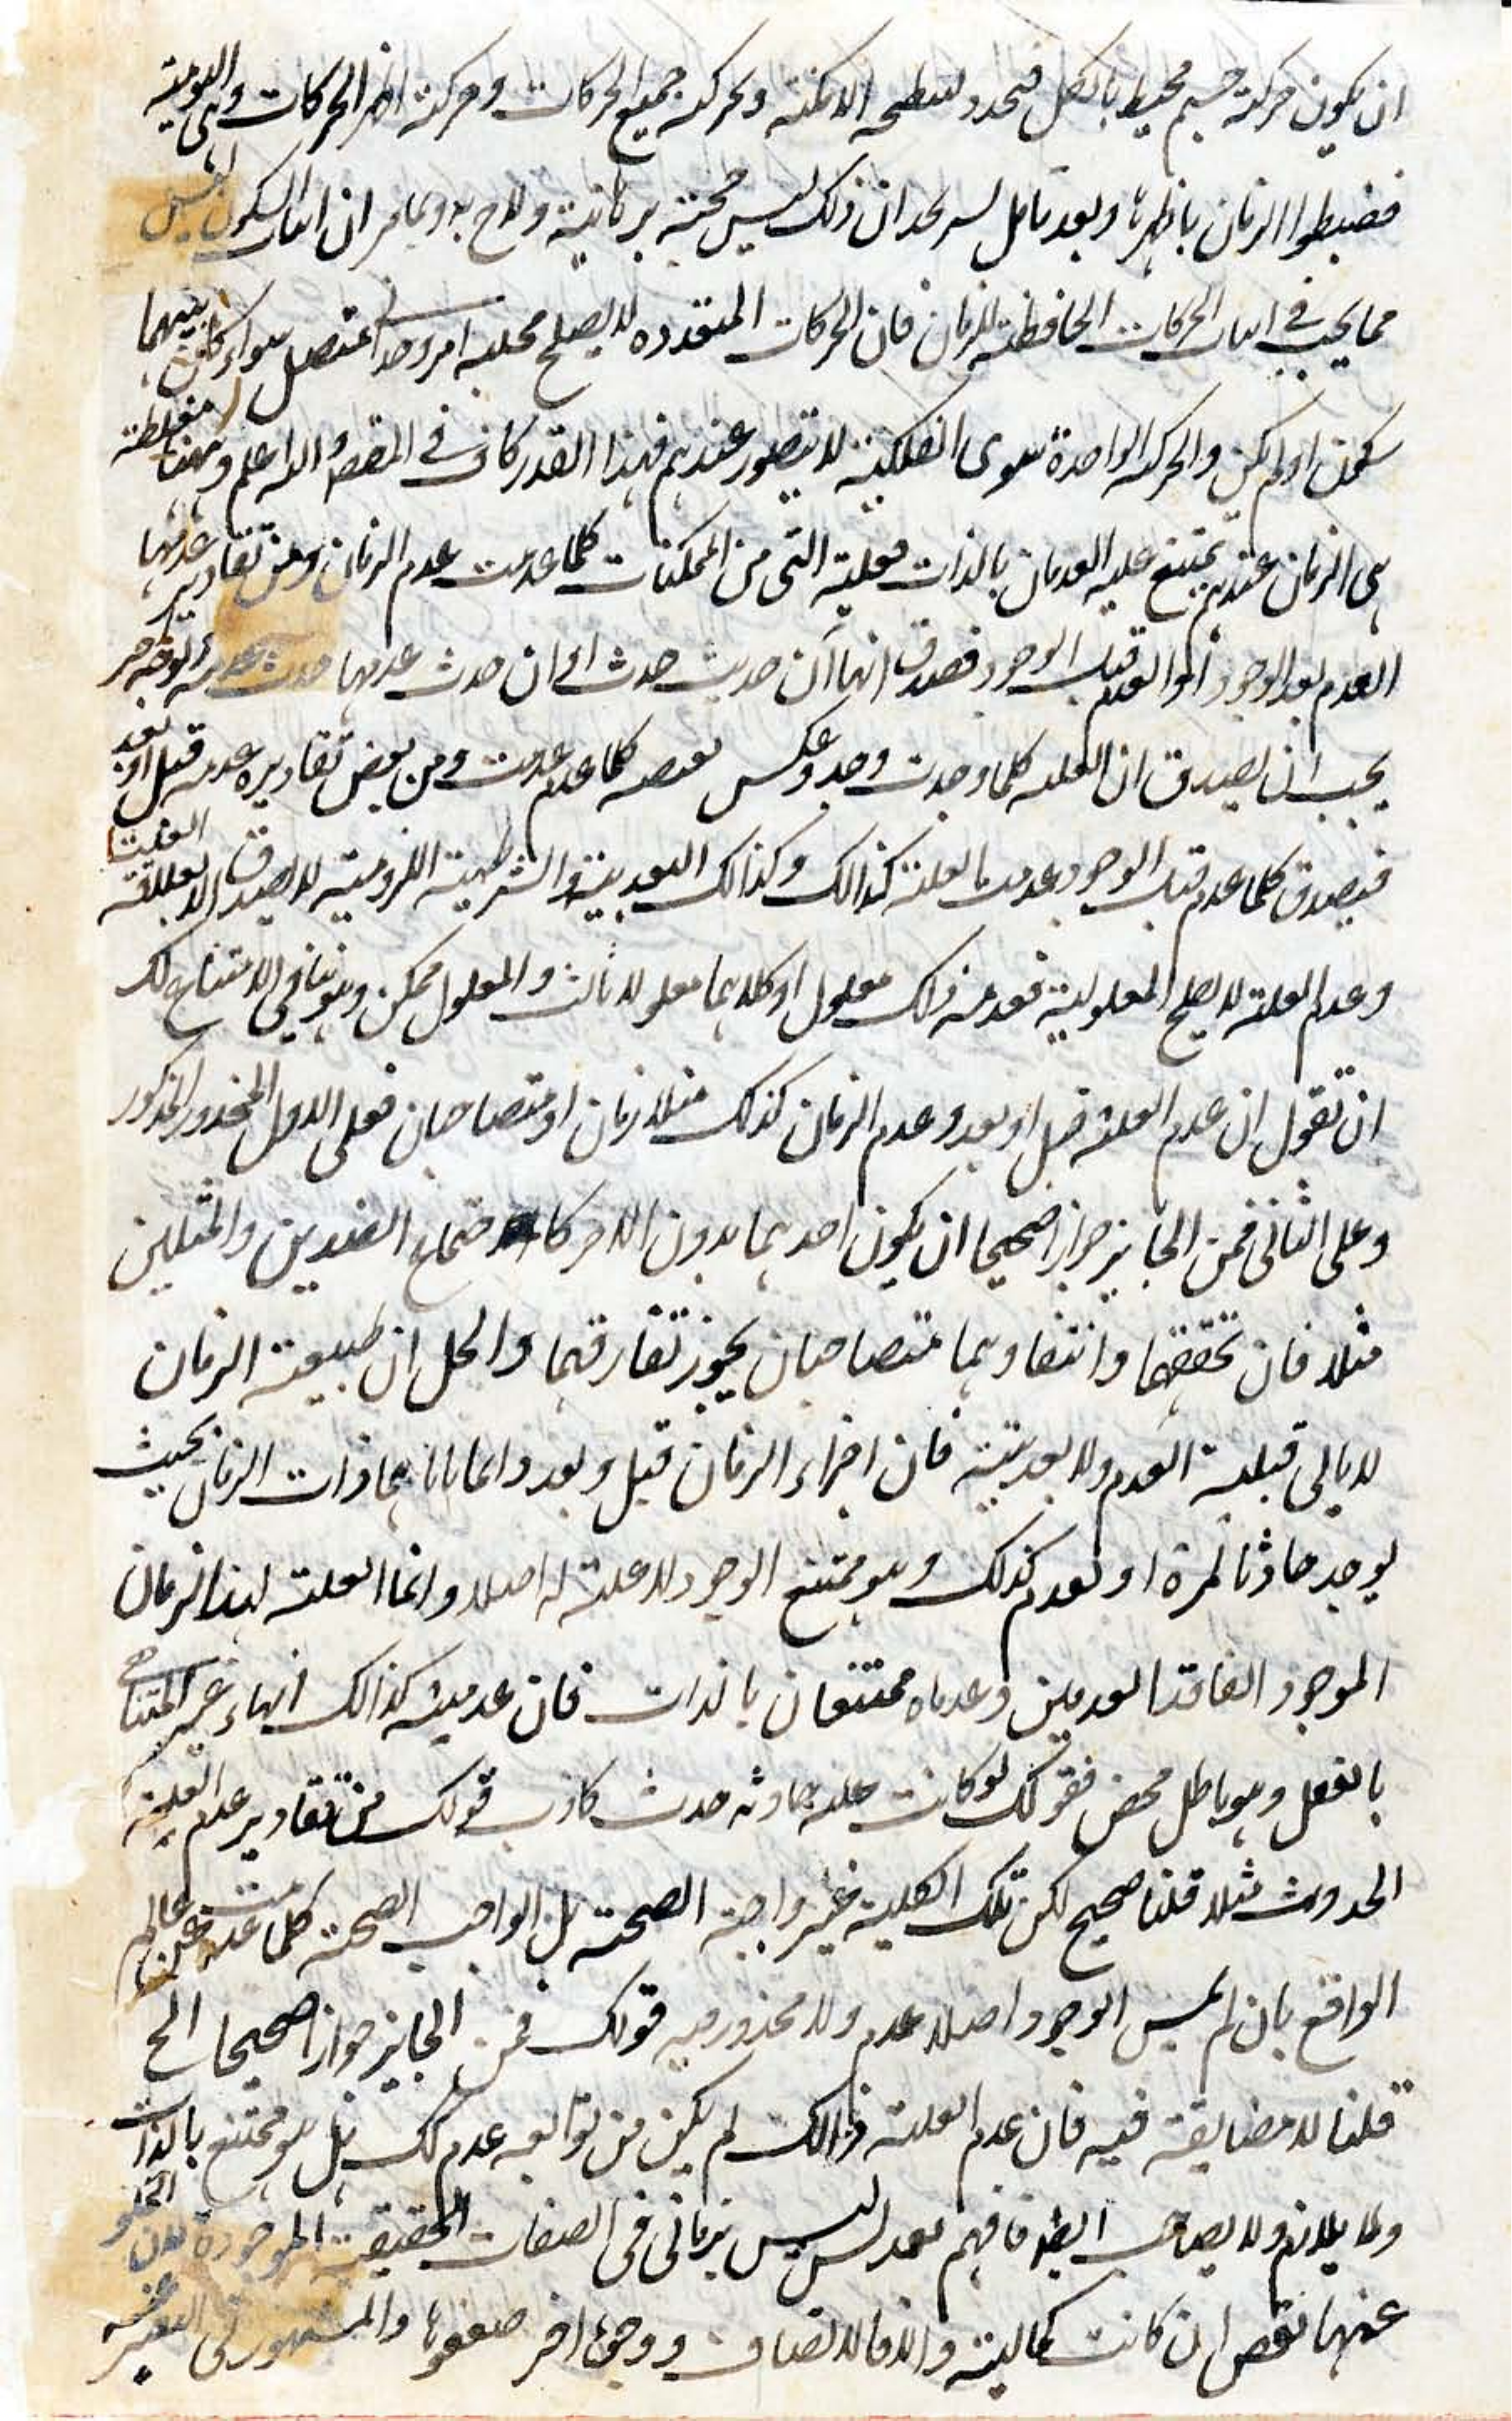 ان یکون حرکته جسم محیط بالکل فیحدد بسطحه الامکنة وبحرکته جمیع الحرکات وحرکته اظهر الحرکات وهی الیومیة
فضبطوا الزمان باظهرها وبعد تامل یسیر تجد ان ذلک لیس حجة برهانیة ولاح به وبما مر ان اثبات السکون لیس
مما یجب فی اثبات الحرکات الحافظة للزمان فان الحرکات المتعددة لا یصلح محلیة امر وحدانی متصل سواء کان بینهما
سکون او لم یکن والحرکة الواحدة سوی الفلکیة لا یتصور عندهم فهذا القدر کاف فی المقصود والله اعلم وههنا مغلطة
هی الزمان عندهم یمتنع علیه العدمان بالذات فعلیته التی من الممکنات کلما عدمت عدم الزمان ومن تقادیر عدمها
العدم بعد الوجود او العدم قبل الوجود فصدق انها ان حدث حدث ای ان حدث عدمها حدث عدمه
یجب ان یصدق ان العلة کلما وجدت وجد وعکس نقیضه کلما عدم عدمت ومن بعض تقادیره عدمه قبل او بعد
فیصدق کلما عدم قبل الوجود عدمت العلة کذالک وکذالک البعدیة والشرطیة اللزومیة لا یصدق الا بعلاقة العلیة
وعدم العلة لا یصلح المعلولیة فعدمه ذاک معلول او کلاهما معلولا ثالث والمعلول ممکن وهو ینافی الامتناع لک
ان تقول ان عدم العلة قبل او بعد وعدم الزمان کذلک متلازمان او متصاحبان فعلی الاول المحذور المذکور
وعلی الثانی فمن الجایز جوازا صحیحا ان یکون احدهما بدون الاخر کاجتماع الضدین والمثلین
مثلا فان تحققهما وانتفاءهما متصاحبان یجوز تفارقهما والحل ان طبیعة الزمان
لا یابی قبلیة العدم ولا بعدیته فان اجزاء الزمان قبل وبعد وانما یاباهما ذات الزمان بحیث
یوجد حادثا لمرة او یعدم کذلک وهو ممتنع الوجود لا علة له اصلا وانما العلة لهذا الزمان
الموجود الفاقد العدمین وعدماه ممتنعان بالذات فان عدمیه کذالک انهاء غیر المتناهی
بالفعل وهو باطل محض فقولک لو کانت علته حادثة حدث کاذب قولک من تقادیر عدم العلیة
الحدوث مثلا قلنا صحیح لکن تلک الکلیة غیر واجبة الصحة بل الواجب الصحة کلما عدمت عن عالم
الواقع بان لم یلبس الوجود اصلا عدم ولا محذور فیه قولک فمن الجایز جوازا صحیحا الخ
قلنا لا مضایقة فیه فان عدم العلة ذالک لم یکن من توابعه عدم لک بل هو ممتنع بالذات
ولا یلازم ولا یصاحب ایضا فافهم لیس بزمانی فی الصفات الحقیقیة الموجودة لان الخلو
عنها نقص ان کانت کمالیة والا فالاتصاف ووجوه اخر ضعفوها والمشهور فی التعبیر عنه